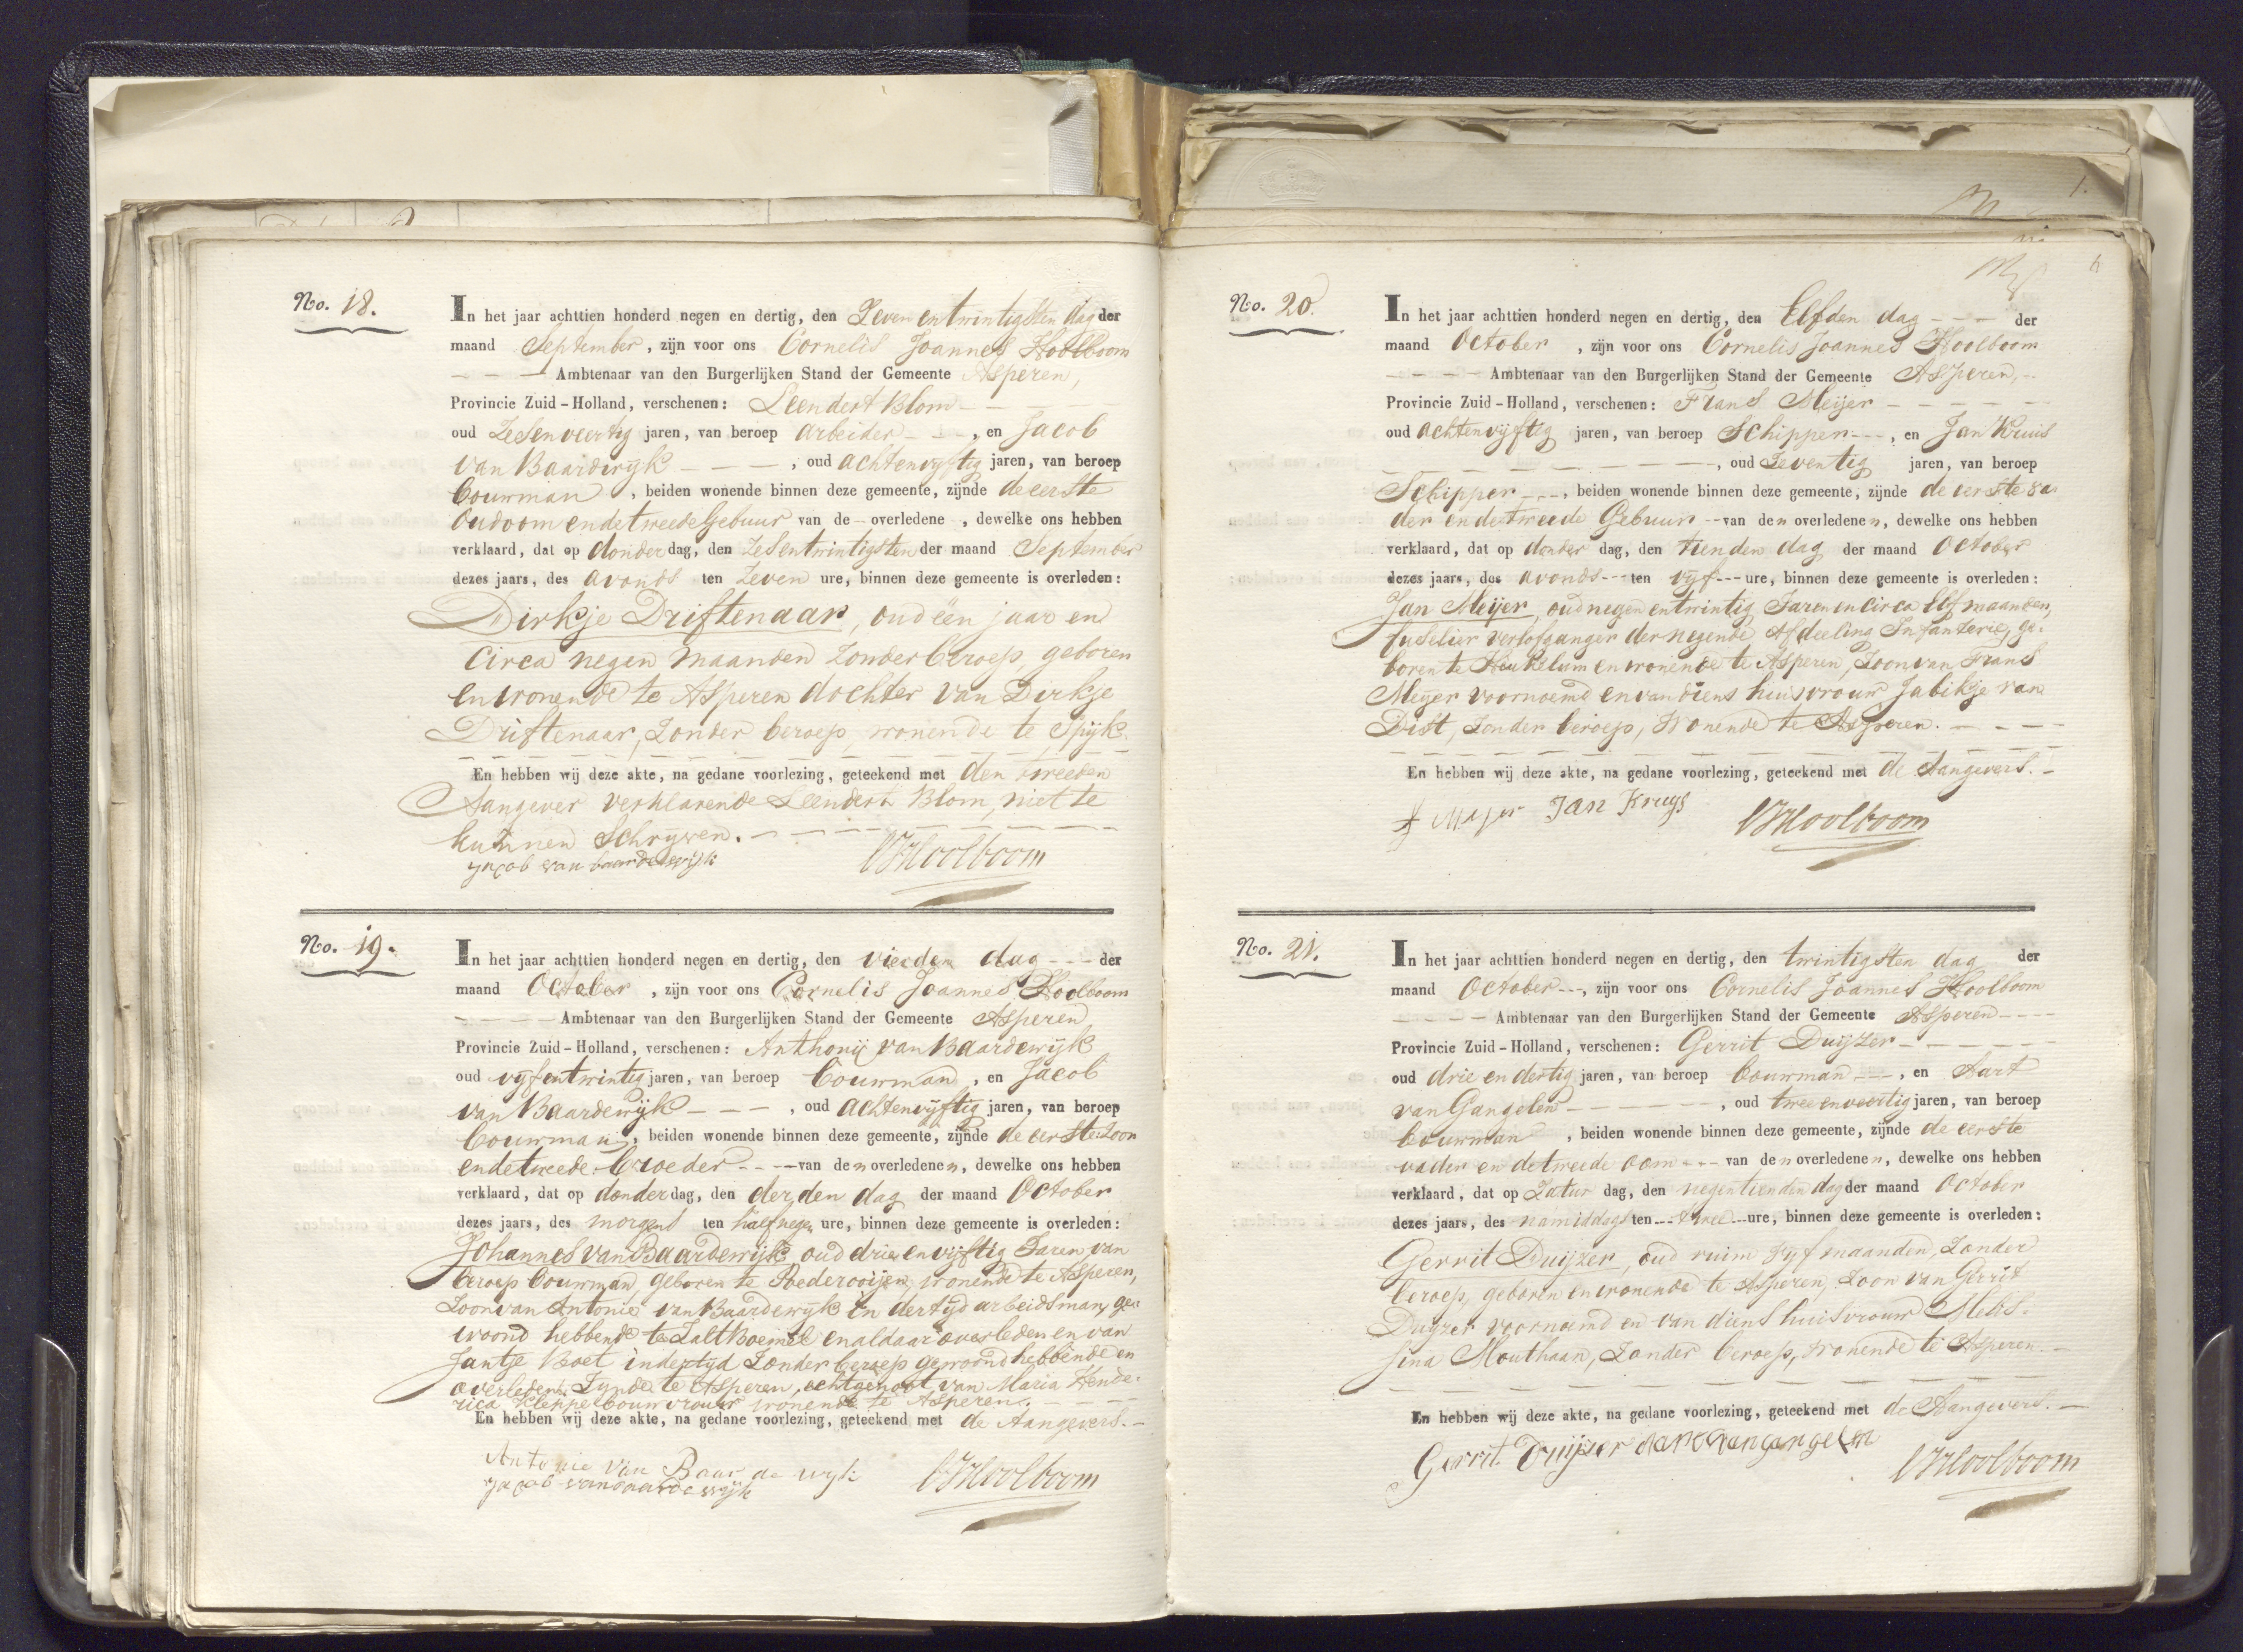 No. 18.
In het jaar achttien honderd negen en dertig, den Zeven en twintigsten dag der
maand September, zijn voor ons Cornelis Joannes Koolboom
Ambtenaar van den Burgerlijken Stand der Gemeente Asperen,
Provincie Zuid-Holland, verschenen: Leendert Blom
oud Zesenveertig jaren, van beroep arbeider, en Jacob
van Baardwijk, oud achtenvyftig jaren, van beroep
bouwman, beiden wonende binnen deze gemeente, zijnde de eerste
Oudoom en de tweede Gebuur van de overledene, dewelke ons hebben
verklaard, dat op donderdag, den Zesentwintigsten der maand September
dezes jaars, des avonds ten Zeven ure, binnen deze gemeente is overleden:
Dirkje Driftenaar, oud één jaar en
Circa negen maanden Zonder beroep, geboren
en wonende te Asperen dochter van Dirkje
Driftenaar, Zonder beroep, wonende te Spijk.
En hebben wij deze akte, na gedane voorlezing, geteekend met den tweeden
Aangever verklarende Leendert Blom, niet te
kunnen Schryven.
Jacob van baardewijk CJKoolboom
No. 19.
In het jaar achttien honderd negen en dertig, den vierden dag der
maand October, zijn voor ons Cornelis Joannes Koolboom
Ambtenaar van den Burgerlijken Stand der Gemeente Asperen
Provincie Zuid-Holland, verschenen: Anthonij van Baardewijk
oud vyfentwintig jaren, van beroep bouwman, en Jacob
van Baardewijk, oud achtenvijftig jaren, van beroep
bouwman, beiden wonende binnen deze gemeente, zijnde de eerste Zoon
en de tweede broeder van den overledenen, dewelke ons hebben
verklaard, dat op donderdag, den derden dag der maand October
dezes jaars, des morgens ten half negen ure, binnen deze gemeente is overleden:
Johannes van Baardewijk oud drie en vijftig Jaren van
beroep bouwman, geboren te Poederooijen, wonende te Asperen,
Zoon van Antonie van Baardewijk in dertyd arbeidsman, ge-
woond hebbende te Zalt Boemel en aldaar overleden en van
Jantje Boet indertyd Zonder beroep gewoond hebbende en
overleden Zynde te Asperen, echtgenoot van Maria Hende-
rica Kleppe bouwvrouw wonende te Asperen.
En hebben wij deze akte, na gedane voorlezing, geteekend met de Aangevers.
Antonie van Baardewyk
Jacob van baardewijk CJKoolboom
No. 20.
In het jaar achttien honderd negen en dertig, den Elfden dag der
maand October, zijn voor ons Cornelis Joannes Koolboom
Ambtenaar van den Burgerlijken Stand der Gemeente Asperen,
Provincie Zuid-Holland, verschenen: Frans Meijer
oud achtenvijftig jaren, van beroep Schipper, en Jan Kruis
, oud Zeventig jaren, van beroep
Schipper, beiden wonende binnen deze gemeente, zijnde de eerste va-
der en de tweede Gebuur van den overledenen, dewelke ons hebben
verklaard, dat op donderdag, den tienden dag der maand October
dezes jaars, des avonds ten vyf ure, binnen deze gemeente is overleden:
Jan Meijer, oud negen entwintig Jaren en circa Elf maanden,
fuselier verlofganger der negende Afdeeling Infanterie, ge-
boren te Heukelum en wonende te Asperen, Zoon van Frans
Meyer voornoemd en van diens huisvrouw Jabikje van
Dist, Zonder beroep, Wonende te Asperen.
En hebben wij deze akte, na gedane voorlezing, geteekend met de Aangevers.
F Majer Jan Kruys CJKoolboom
No. 21.
In het jaar achttien honderd negen en dertig, den twintigsten dag der
maand October, zijn voor ons Cornelis Joannes Koolboom
Ambtenaar van den Burgerlijken Stand der Gemeente Asperen
Provincie Zuid-Holland, verschenen: Gerrit Duijzer
oud drie en dertig jaren, van beroep bouwman, en Aart
van Gangelen, oud twee en veertig jaren, van beroep
bouwman, beiden wonende binnen deze gemeente, zijnde de eerste
vader en de tweede oom van den overledenen, dewelke ons hebben
verklaard, dat op Zaturdag, den negentienden dag der maand October
dezes jaars, des namiddags ten twee ure, binnen deze gemeente is overleden:
Gerrit Duijzer, oud ruim vyf maanden, Zonder
beroep, geboren en wonende te Asperen, Zoon van Gerrit
Duyzer voornoemd en van diens huisvrouw Mels-
jina Mouthaan, Zonder beroep, wonende te Asperen.
En hebben wij deze akte, na gedane voorlezing, geteekend met de Aangevers.
Gerrit Duijzer Aart van gangelen CJKoolboom